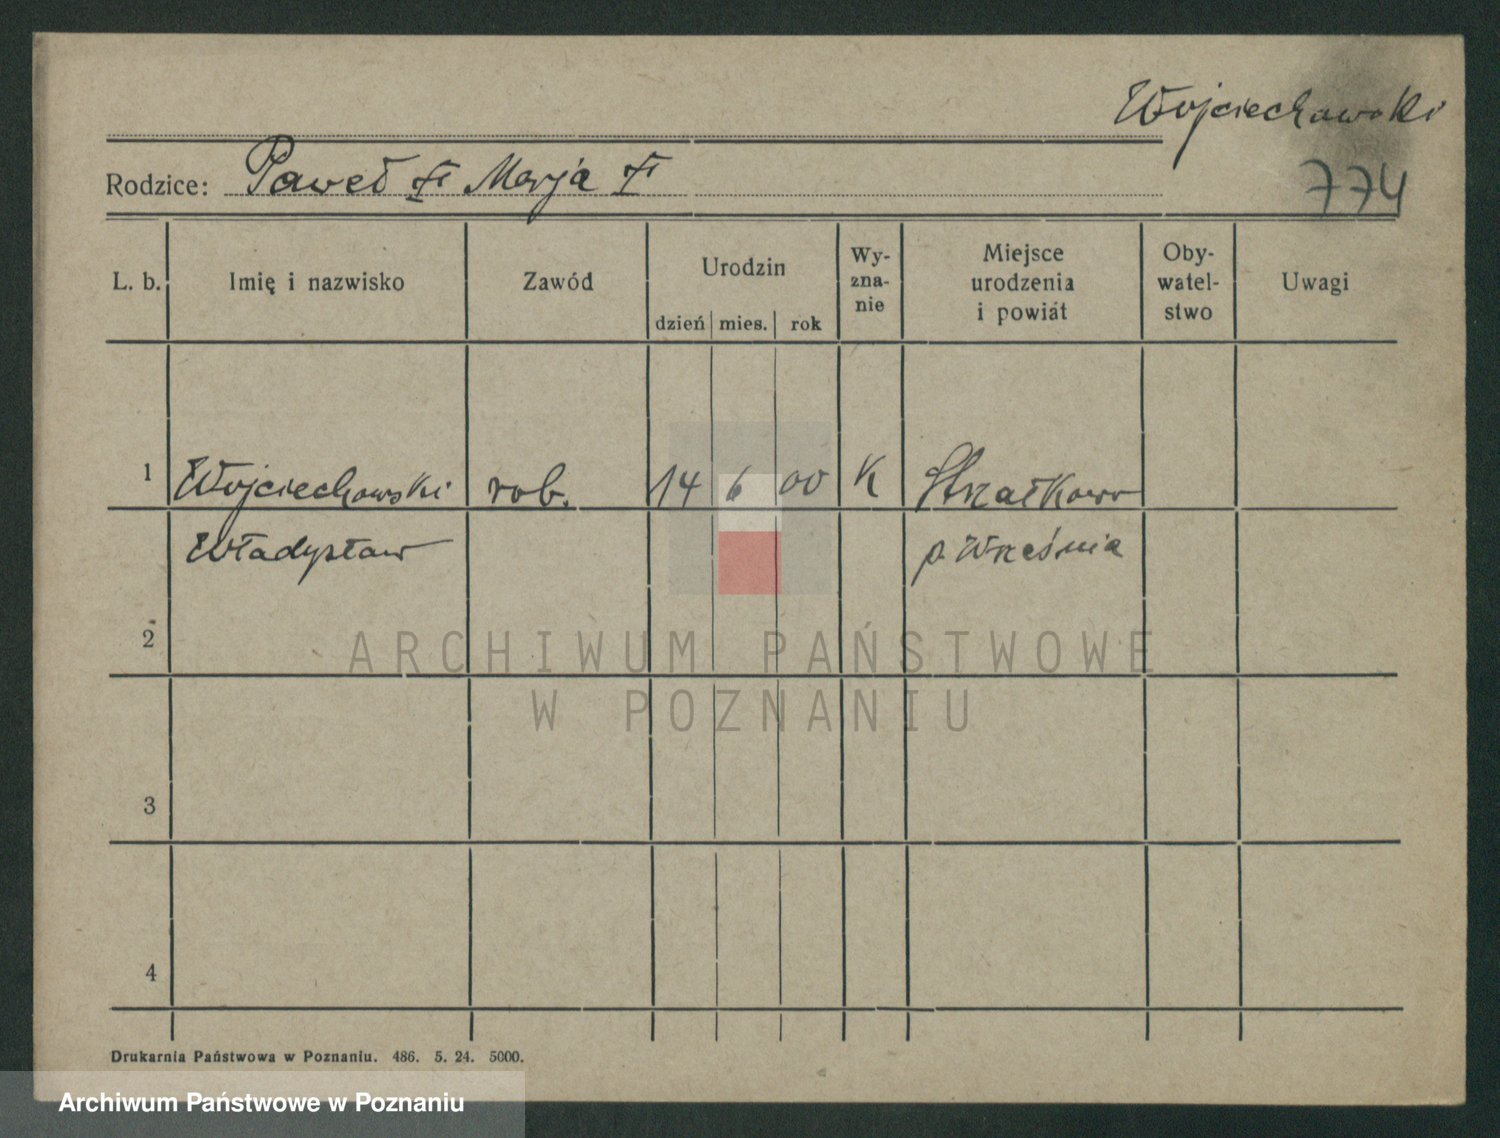 Wojciechowski
Rodzice: Paweł † Marja †
774
L. b. Imię i nazwisko Zawód Urodzin dzień mies. rok Wy-zna-nie Miejsce urodzenia i powiat Oby-watel-stwo Uwagi
1 Wojciechowski rob. 14 6 00 K Strzałkowo
Władysław p. Września
2
ARCHIWUM PAŃSTWOWE
W POZNANIU
3
4
Drukarnia Państwowa w Poznaniu. 486. 5. 24. 5000.
Archiwum Państwowe w Poznaniu